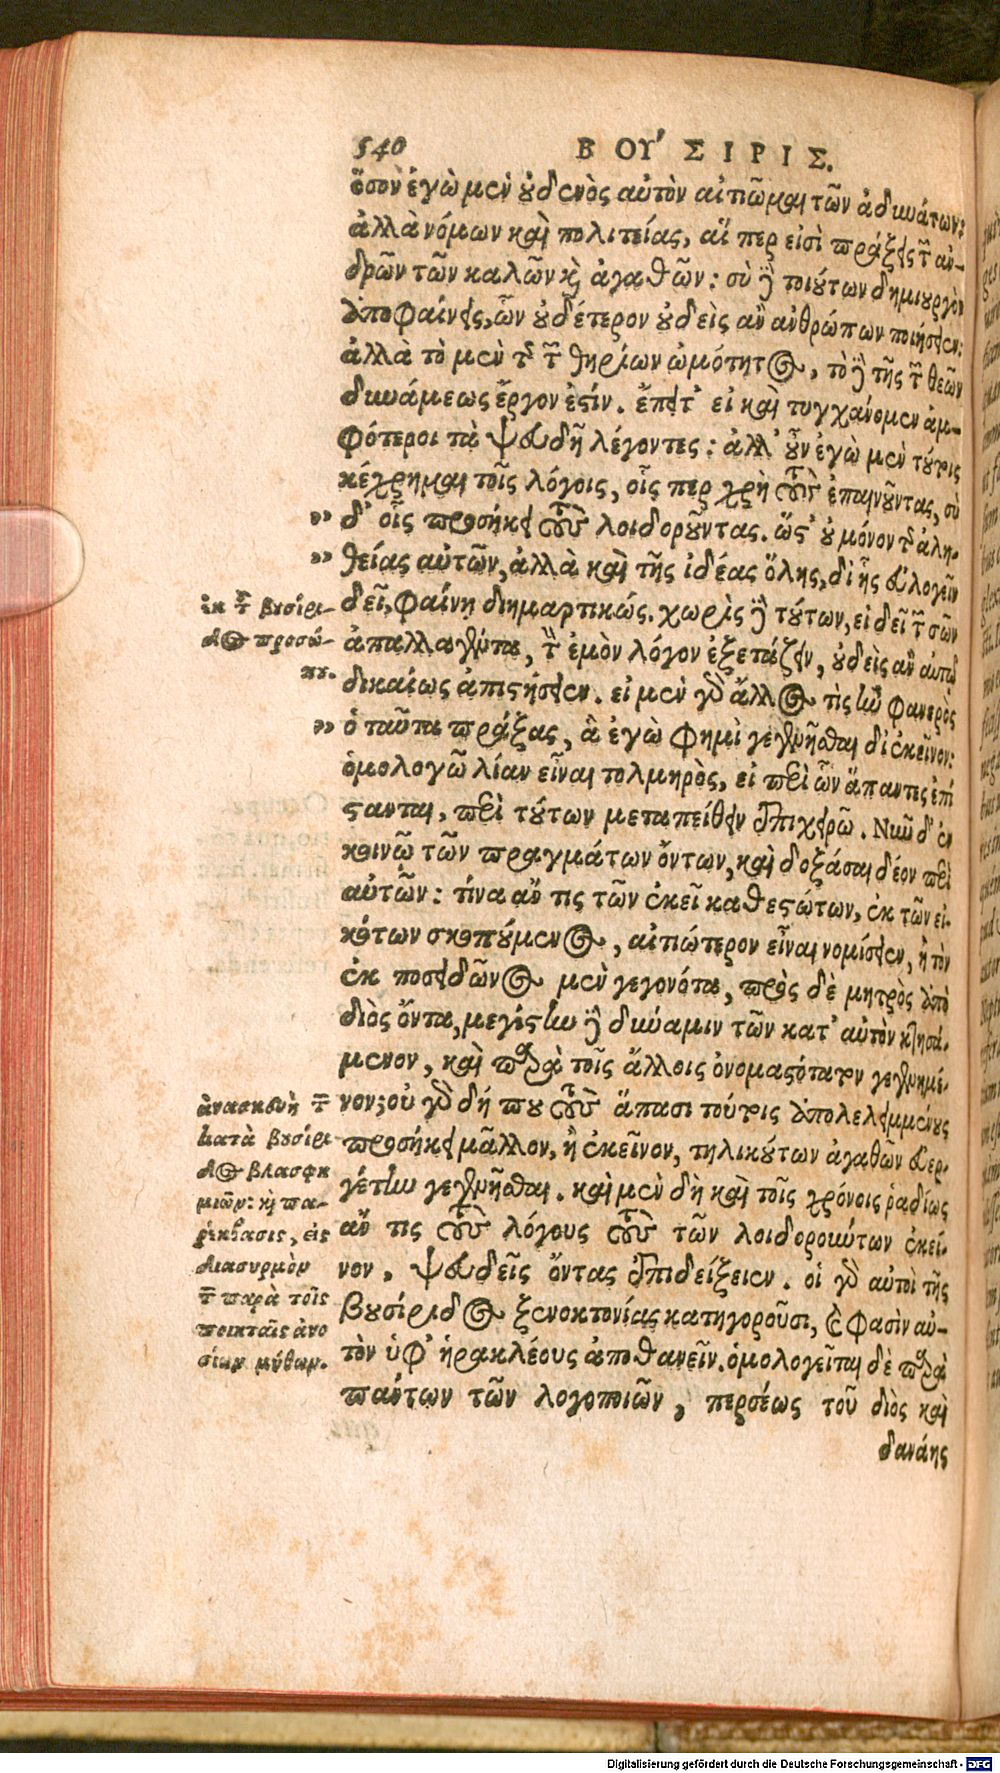 540 ΒΟΎΣΙΡΙΣ.
ὅσον ἐγὼ μὲν οὐδενὸς αὐτὸν αἰτιῶμαι τῶν ἀδυνάτων:
ἀλλὰ νόμων καὶ πολιτείας, αἵ περ εἰσὶ πράξεις τῶν ἀν-
δρῶν τῶν καλῶν καὶ ἀγαθῶν: σὺ δὲ τοιούτων δημιουργὸν
ἀποφαίνεις, ὧν οὐδέτερον οὐδεὶς ἂν ἀνθρώπων ποιήσειεν:
ἀλλὰ τὸ μὲν τῆς τῶν θηρίων ὠμότητος, τὸ δὲ τῆς τῶν θεῶν
δυνάμεως ἔργον ἐστίν. ἔπειτ' εἰ καὶ τυγχάνομεν ἀμ-
φότεροι τὰ ψευδῆ λέγοντες: ἀλλ' οὖν ἐγὼ μὲν τούτοις
κέχρημαι τοῖς λόγοις, οἷς περ χρὴ τοὺς ἐπαινοῦντας, σὺ
„ δ' οἷς προσήκει τοὺς λοιδοροῦντας. ὥστ' οὐ μόνον τῆς ἀλη-
„ θείας αὐτῶν, ἀλλὰ καὶ τῆς ἰδέας ὅλης, δι' ἧς εὐλογεῖν
δεῖ, φαίνῃ διημαρτικώς. χωρὶς δὲ τούτων, εἰ δεῖ τῶν σῶν
ἀπαλλαγέντα, τὸν ἐμὸν λόγον ἐξετάζειν, οὐδεὶς ἂν αὐτῷ
δικαίως ἐπιτιμήσειεν. εἰ μὲν γὰρ ἄλλος τὶς ἦν φανερὸς
„ ὁ ταῦτα πράξας, ἃ ἐγὼ φημὶ γεγενῆσθαι δι' ἐκεῖνον:
ὁμολογῶ λίαν εἶναι τολμηρὸς, εἰ περὶ ὧν ἅπαντες ἐπί
στανται, περὶ τούτων μεταπείθειν ἐπιχειρῶ. Νῦν δ' ἐν
κοινῷ τῶν πραγμάτων ὄντων, καὶ δοξάσαι δέον περὶ
αὐτῶν: τίνα ἄν τις τῶν ἐκεῖ καθεστώτων, ἐκ τῶν εἰ-
κότων σκοπούμενος, αἰτιώτερον εἶναι νομίσειεν, ἢ τὸν
ἐκ ποσειδῶνος μὲν γεγονότα, πρὸς δὲ μητρὸς ἀπὸ
διὸς ὄντα, μεγίστην δὲ δύναμιν τῶν κατ' αὐτὸν κτησά-
μενον, καὶ παρὰ τοῖς ἄλλοις ὀνομαστότατον γεγενημέ-
νον; οὐ γὰρ δή που τοὺς ἅπασι τούτοις ἀπολελειμμένους
προσήκει μᾶλλον, ἢ ἐκεῖνον, τηλικούτων ἀγαθῶν εὐερ-
γέτην γεγενῆσθαι. καὶ μὲν δὴ καὶ τοῖς χρόνοις ῥαδίως
ἄν τις τοὺς λόγους τοὺς τῶν λοιδορούντων ἐκεῖ-
νον, ψευδεῖς ὄντας ἐπιδείξειεν. οἱ γὰρ αὐτοὶ τῆς
βουσίριδος ξενοκτονίας κατηγοροῦσι, καὶ φασὶν αὐ-
τὸν ὑφ' ἡρακλέους ἀποθανεῖν. ὁμολογεῖται δὲ παρὰ
πάντων τῶν λογοποιῶν, περσέως τοῦ διὸς καὶ
δανάης
ἐκ τοῦ βουσίρι-
δος προσώ-
που.
ἀνασκευὴ τῶν
κατὰ βουσίρι
δος βλασφη
μιῶν: καὶ πα-
ρέκβασις, εἰς
διασυρμὸν
τῶν παρὰ τοῖς
ποιηταῖς ἀνο
σίων μύθων.
Digitalisierung gefördert durch die Deutsche Forschungsgemeinschaft - DFG